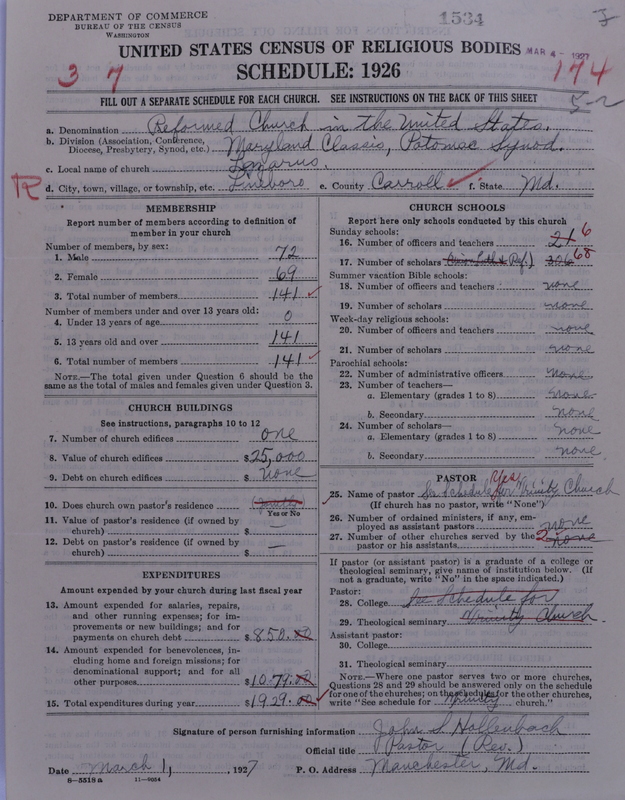 DEPARTMENT OF COMMERCE
BUREAU OF THE CENSUS
WASHINGTON
1534
UNITED STATES CENSUS OF RELIGIOUS BODIES
MAR 4 - 1927
SCHEDULE: 1926
3 7
174
FILL OUT A SEPARATE SCHEDULE FOR EACH CHURCH. SEE INSTRUCTIONS ON THE BACK OF THIS SHEET
a. Denomination Reformed Church in the United States.
b. Division (Association, Conference, Diocese, Presbytery, Synod, etc.) Maryland Classis, Potomac Synod.
c. Local name of church Lazarus.
R
d. City, town, village, or township, etc. Lineboro e. County Carroll f. State Md.
MEMBERSHIP
Report number of members according to definition of
member in your church
Number of members, by sex:
1. Male 72
2. Female 69
3. Total number of members 141
Number of members under and over 13 years old:
4. Under 13 years of age 0
5. 13 years old and over 141
6. Total number of members 141
NOTE.—The total given under Question 6 should be the
same as the total of males and females given under Question 3.
CHURCH BUILDINGS
See instructions, paragraphs 10 to 12
7. Number of church edifices one
8. Value of church edifices $25,000
9. Debt on church edifices $none
10. Does church own pastor's residence
Yes or No
11. Value of pastor's residence (if owned by
church) $ —
12. Debt on pastor's residence (if owned by
church) $ —
EXPENDITURES
Amount expended by your church during last fiscal year
13. Amount expended for salaries, repairs,
and other running expenses; for im-
provements or new buildings; and for
payments on church debt $850.00
14. Amount expended for benevolences, in-
cluding home and foreign missions; for
denominational support; and for all
other purposes $1079.00
15. Total expenditures during year $1929.00
CHURCH SCHOOLS
Report here only schools conducted by this church
Sunday schools:
16. Number of officers and teachers 21 6
17. Number of scholars (Union Luth & Ref.) 206 68
Summer vacation Bible schools:
18. Number of officers and teachers none
19. Number of scholars none
Week-day religious schools:
20. Number of officers and teachers none
21. Number of scholars none
Parochial schools:
22. Number of administrative officers none
23. Number of teachers—
a. Elementary (grades 1 to 8) none
b. Secondary none
24. Number of scholars—
a. Elementary (grades 1 to 8) none
b. Secondary none
PASTOR
Yes
25. Name of pastor See Schedule for Trinity Church
(If church has no pastor, write "None")
26. Number of ordained ministers, if any, em-
ployed as assistant pastors none
27. Number of other churches served by the
pastor or his assistants 2 none
If pastor (or assistant pastor) is a graduate of a college or
theological seminary, give name of institution below. (If
not a graduate, write "No" in the space indicated.)
Pastor:
28. College See Schedule for
29. Theological seminary Trinity Church
Assistant pastor:
30. College
31. Theological seminary
NOTE.—Where one pastor serves two or more churches,
Questions 28 and 29 should be answered only on the schedule
for one of the churches; on the schedules for the other churches,
write "See schedule for Trinity church."
Signature of person furnishing information John S Hollenbach
Official title Pastor (Rev.)
Date March 1, 1927 P. O. Address Manchester, Md.
8-5518 a 11-9054